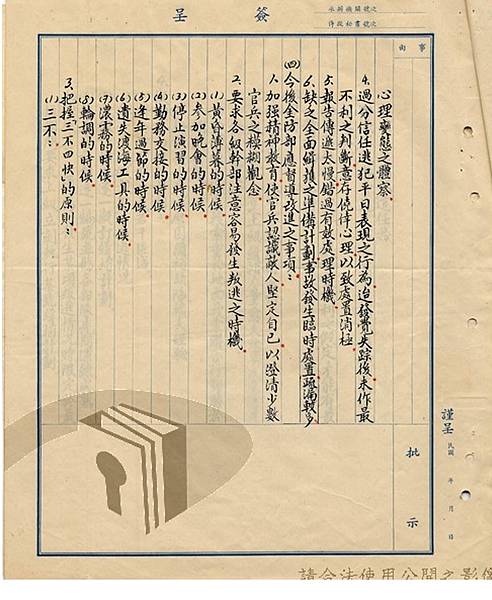 簽呈
事由
心理變態之體察
4.過分信任逃犯平日表現之行為迨發覺失踪後未作最
不利之判斷意存僥倖心理以致處置消極
5.報告傳遞太慢錯過有效處理時機
6.缺乏全面緝捕之準備計劃事故發生臨時處置疏漏較多
(四)今後金防部應督導改進之事項：
1.加強精神教育使官兵認識敵人堅定自己以澄清少數
官兵之模糊觀念
2.要求各級幹部注意容易發生叛逃之時機
(1)黃昏薄暮的時候
(2)參加晚會的時候
(3)停止演習的時候
(4)勤務交接的時候
(5)逢年過節的時候
(6)遺失渡海工具的時候
(7)濃霧的時候
(8)輪調的時候
3.把握「三不四快」的原則：
(1)三不：
批示
謹呈
民國 年 月 日
請合法使用公開之影像